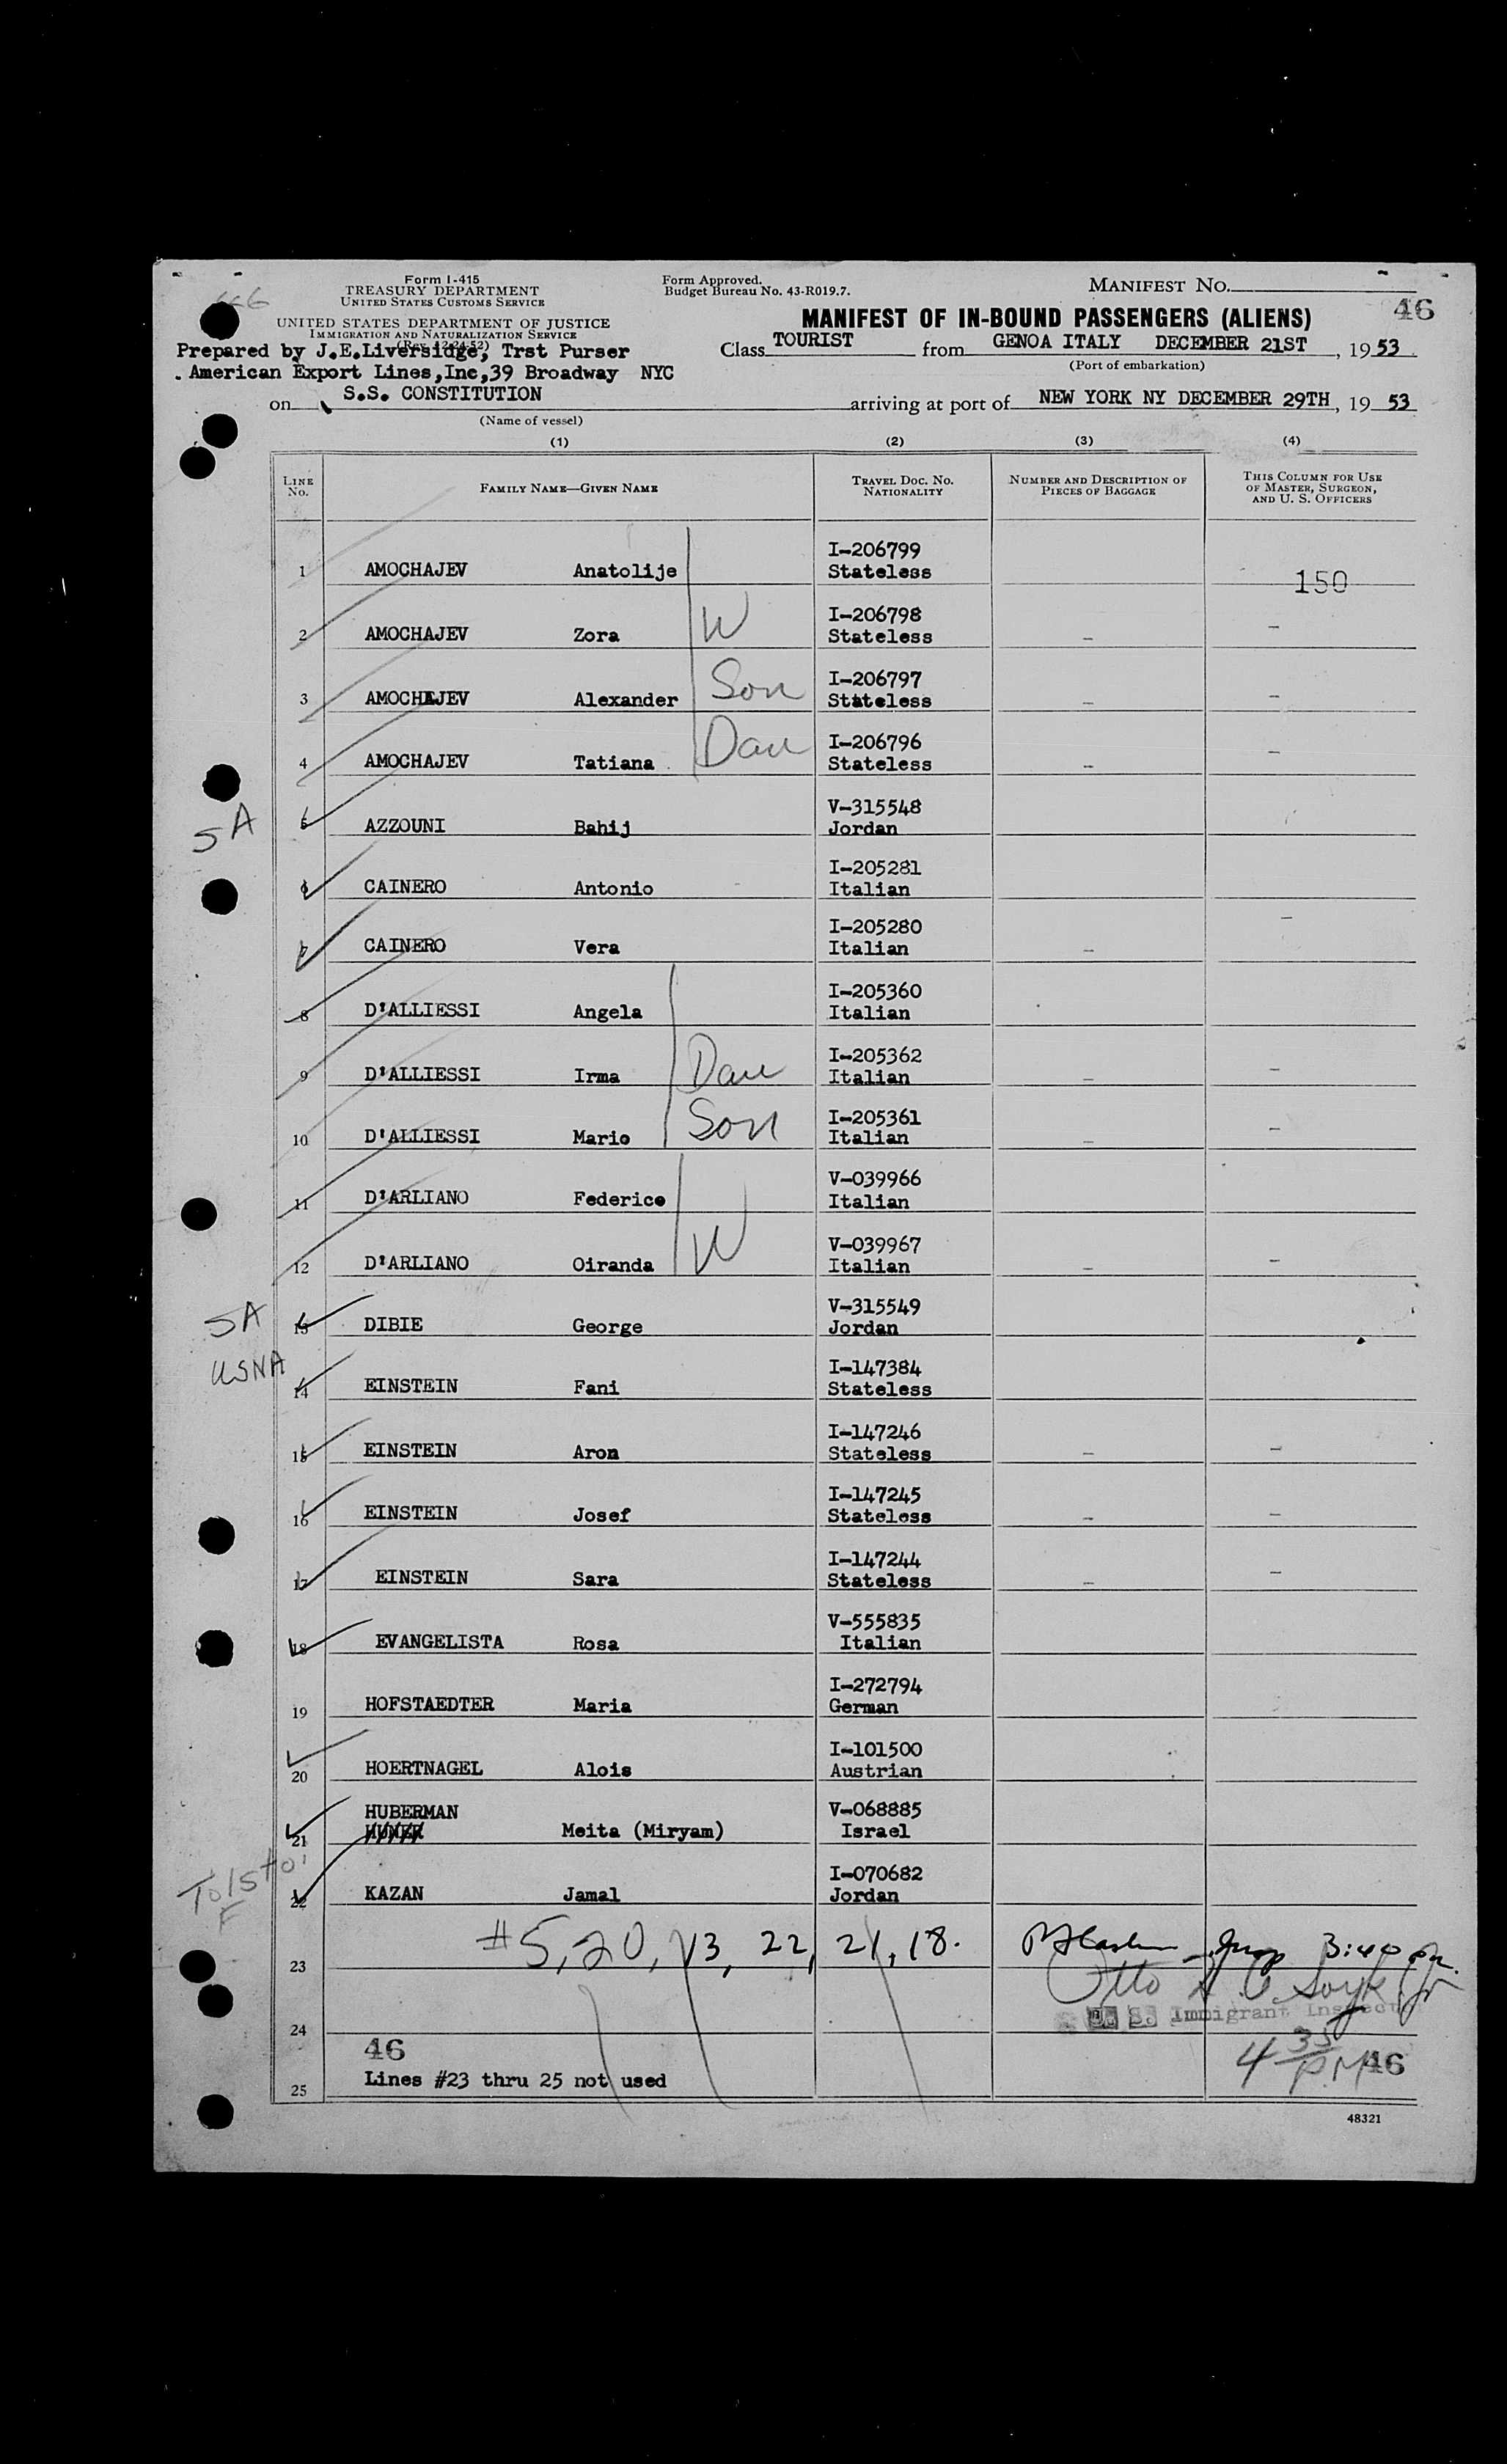 Form I-415
TREASURY DEPARTMENT
UNITED STATES CUSTOMS SERVICE
Form Approved.
Budget Bureau No. 43-R019.7.
MANIFEST NO.
46
UNITED STATES DEPARTMENT OF JUSTICE
IMMIGRATION AND NATURALIZATION SERVICE
(Rev. 12-24-52)
MANIFEST OF IN-BOUND PASSENGERS (ALIENS)
Prepared by J.E.Liversidge, Trst Purser
Class TOURIST from GENOA ITALY DECEMBER 21ST, 1953
(Port of embarkation)
American Export Lines,Inc,39 Broadway NYC
on S.S. CONSTITUTION arriving at port of NEW YORK NY DECEMBER 29TH, 19 53
(Name of vessel)
(1) (2) (3) (4)
LINE NO. FAMILY NAME—GIVEN NAME TRAVEL DOC. NO. NATIONALITY NUMBER AND DESCRIPTION OF PIECES OF BAGGAGE THIS COLUMN FOR USE OF MASTER, SURGEON, AND U. S. OFFICERS
I-206799
1 AMOCHAJEV Anatolije Stateless 150
I-206798
2 AMOCHAJEV Zora W Stateless – –
I-206797
3 AMOCHAJEV Alexander Son Stateless – –
I-206796
4 AMOCHAJEV Tatiana Dau Stateless – –
V-315548
SA 5 AZZOUNI Bahij Jordan
I-205281
6 CAINERO Antonio Italian
I-205280
7 CAINERO Vera Italian – –
I-205360
8 D'ALLIESSI Angela Italian
I-205362
9 D'ALLIESSI Irma Dau Italian – –
I-205361
10 D'ALLIESSI Mario Son Italian – –
V-039966
11 D'ARLIANO Federico Italian
V-039967
12 D'ARLIANO Oiranda W Italian – –
V-315549
SA 13 DIBIE George Jordan
I-147384
USNA 14 EINSTEIN Fani Stateless
I-147246
15 EINSTEIN Aron Stateless – –
I-147245
16 EINSTEIN Josef Stateless – –
I-147244
17 EINSTEIN Sara Stateless – –
V-555835
18 EVANGELISTA Rosa Italian
I-272794
19 HOFSTAEDTER Maria German
I-101500
20 HOERTNAGEL Alois Austrian
HUBERMAN V-068885
21 HUNER Meita (Miryam) Israel
I-070682
22 KAZAN Jamal Jordan
#5, 20, 13, 22, 21, 18. 3:40 pm.
23
Otto
U. S. Immigrant Inspector
24
46
4 35 PM 46
25 Lines #23 thru 25 not used
48321